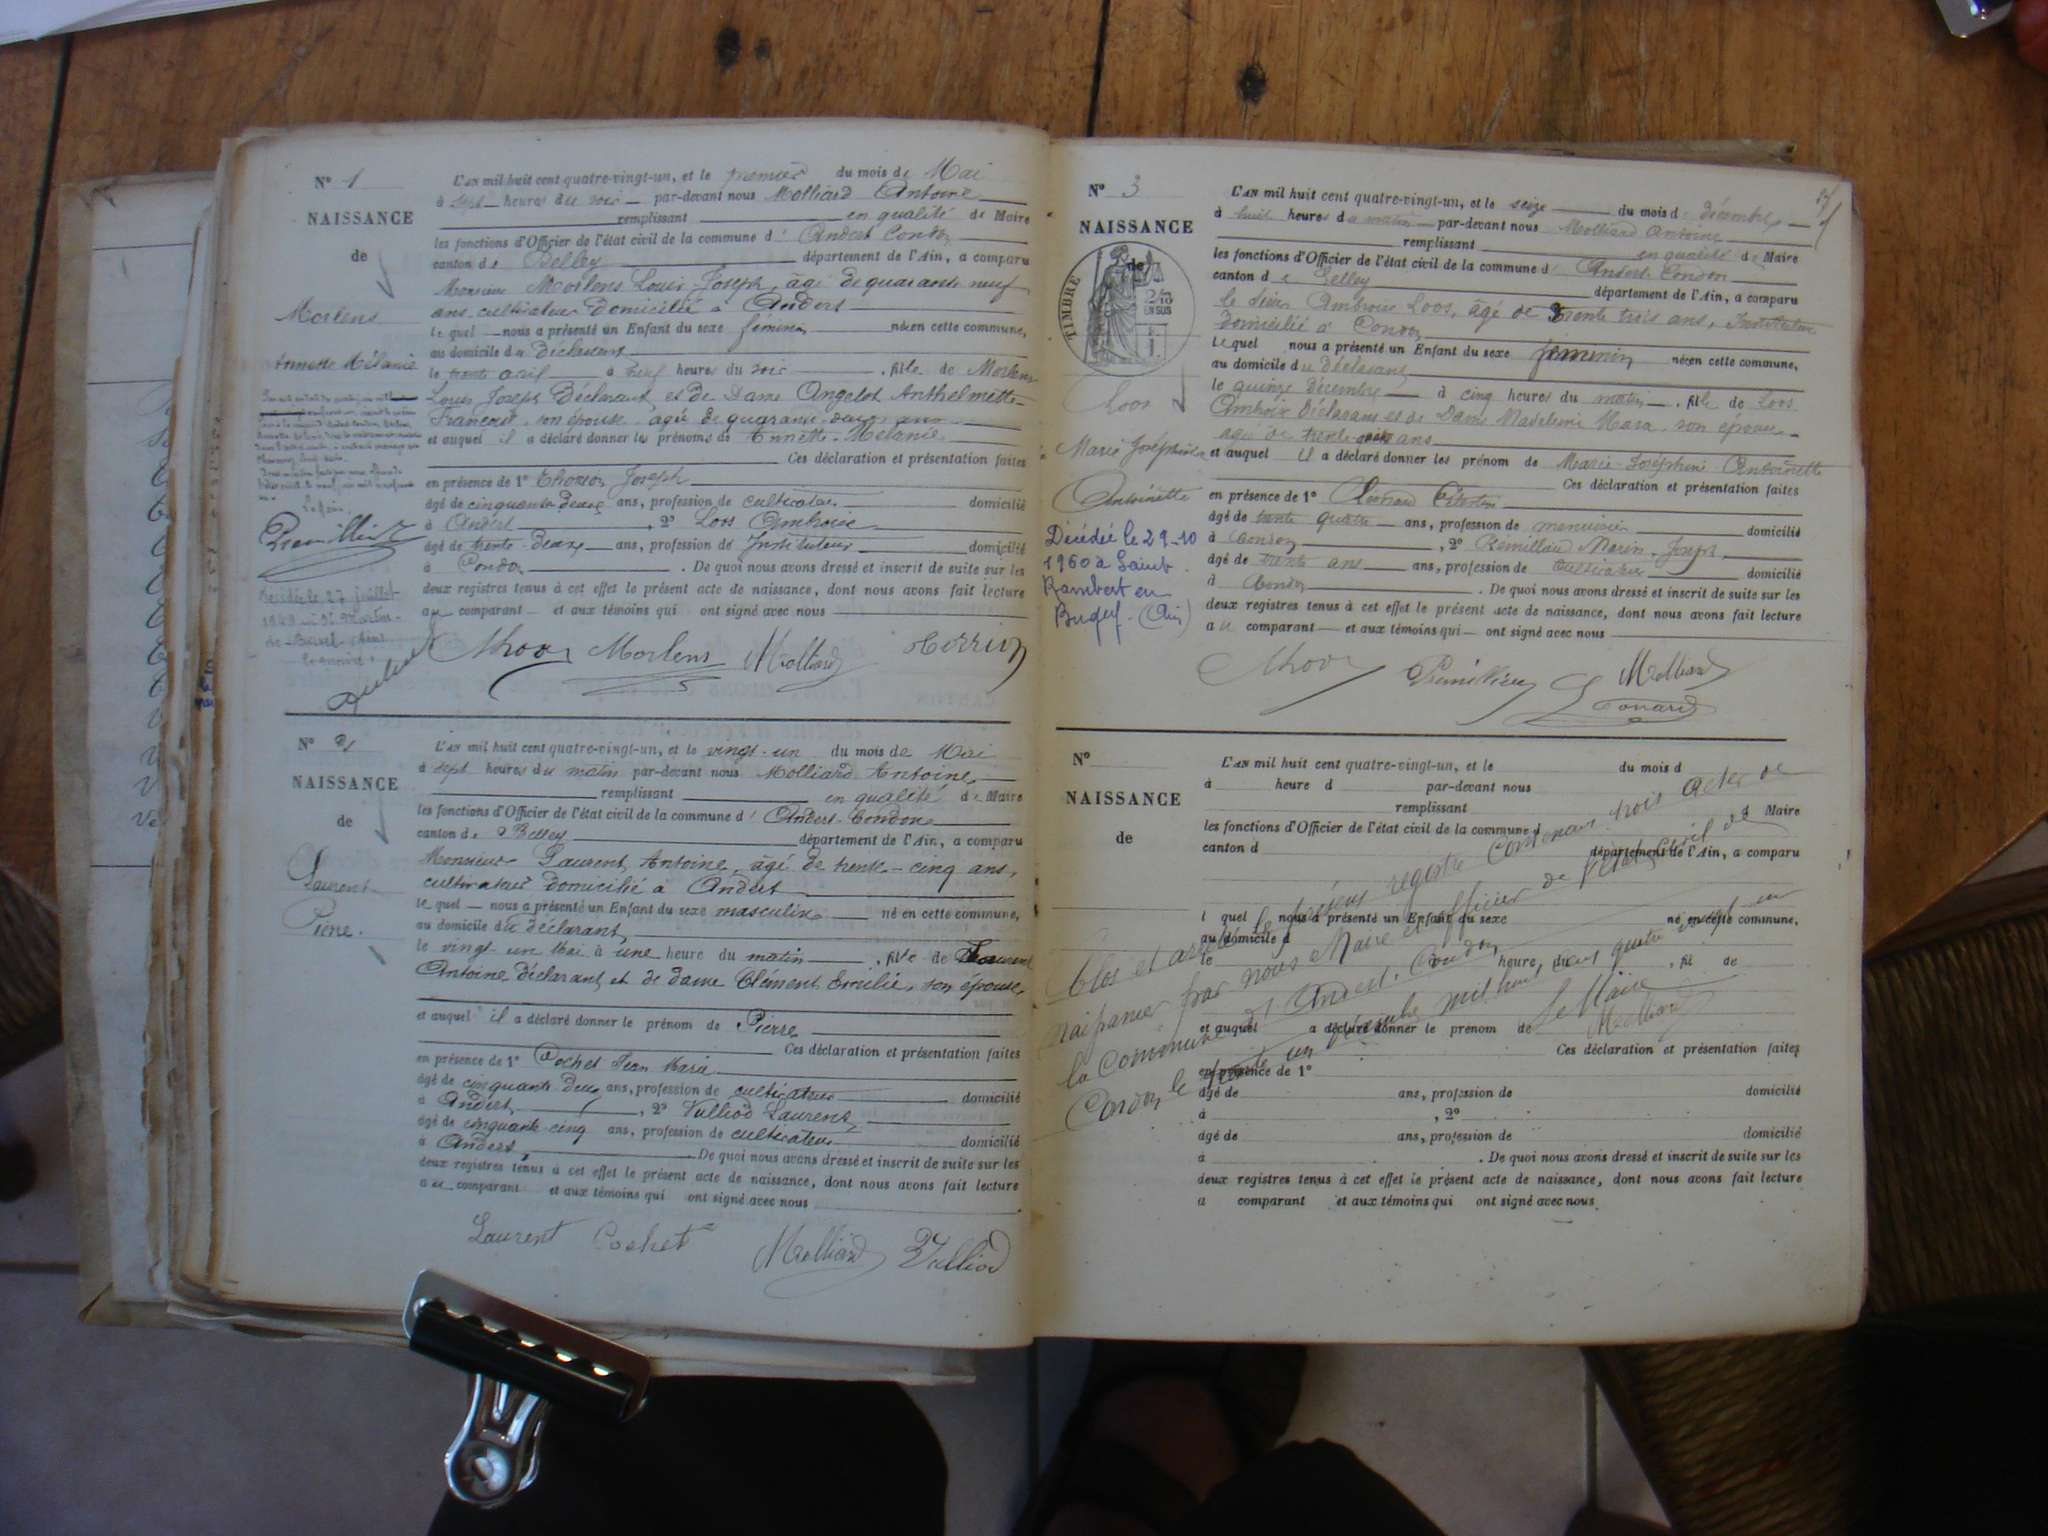 N° 1
NAISSANCE
de
Morlens
Annette Mélanie
Décédée le 27 juillet
1949 à St Martin
L'AN mil huit cent quatre-vingt-un, et le premier du mois de Mai
à sept heures du soir par-devant nous Molliard Antoine
remplissant en qualité de Maire
les fonctions d'Officier de l'état civil de la commune d' Andert Condon
canton de Belley département de l'Ain, a comparu
Monsieur Morlens Louis Joseph, âgé de quarante neuf
ans cultivateur domicilié à Andert
le quel nous a présenté un Enfant du sexe féminin née en cette commune,
au domicile du déclarant
le trente avril à neuf heures du soir , fille de Morlens
Louis Joseph Déclarant et de Dame Angelot Anthelmette
Françoise, son épouse, agée de quarante deux ans
et auquel il a déclaré donner les prénoms de Annette Mélanie
Ces déclaration et présentation faites
en présence de 1° Joseph
âgé de cinquante deux ans, profession de cultivateur domicilié
à Andert , 2° Loos Ambroise
âgé de trente-deux ans, profession de Instituteur domicilié
à Condon . De quoi nous avons dressé et inscrit de suite sur les
deux registres tenus à cet effet le présent acte de naissance, dont nous avons fait lecture
au comparant et aux témoins qui ont signé avec nous
Morlens Molliard
N° 2
NAISSANCE
de
Laurent
Pierre
L'AN mil huit cent quatre-vingt-un, et le vingt-un du mois de Mai
à sept heures du matin par-devant nous Molliard Antoine
remplissant en qualité de Maire
les fonctions d'Officier de l'état civil de la commune d' Andert-Condon
canton de Belley département de l'Ain, a comparu
Monsieur Laurent Antoine, âgé de trente-cinq ans,
cultivateur domicilié à Andert
le quel nous a présenté un Enfant du sexe masculin né en cette commune,
au domicile du déclarant,
le vingt un Mai à une heure du matin , fils de Laurent
Antoine déclarant et de dame Clément Emilie, son épouse,
et auquel il a déclaré donner le prénom de Pierre
Ces déclaration et présentation faites
en présence de 1° Cochet Jean Marie
âgé de cinquante deux ans, profession de cultivateur domicilié
à Andert , 2° Vulliod Laurent
âgé de cinquante cinq ans, profession de cultivateur domicilié
à Andert, . De quoi nous avons dressé et inscrit de suite sur les
deux registres tenus à cet effet le présent acte de naissance, dont nous avons fait lecture
au comparant et aux témoins qui ont signé avec nous
Laurent Cochet Molliard Vulliod
N° 3
NAISSANCE
de
TIMBRE
2/10
EN SUS
Loos
Marie Joséphine
Antoinette
Décédée le 29-10
1960 à Saint
Rambert en
Bugey (Ain)
L'AN mil huit cent quatre-vingt-un, et le seize du mois de décembre
à huit heures du matin par-devant nous Molliard Antoine
remplissant en qualité de Maire
les fonctions d'Officier de l'état civil de la commune d' Andert-Condon
canton de Belley département de l'Ain, a comparu
le sieur Ambroise Loos, âgé de trente trois ans, Instituteur
domicilié à Condon
le quel nous a présenté un Enfant du sexe féminin née en cette commune,
au domicile du déclarant
le quinze décembre à cinq heures du matin , fille de Loos
Ambroise déclarant et de Dame Madeleine Mara, son épouse
agée de trente ans
et auquel il a déclaré donner les prénom de Marie-Joséphine Antoinette
Ces déclaration et présentation faites
en présence de 1° Léonard
âgé de trente quatre ans, profession de menuisier domicilié
à Condon , 2° Prémillieu Marin Joseph
âgé de trente ans ans, profession de cultivateur domicilié
à Condon . De quoi nous avons dressé et inscrit de suite sur les
deux registres tenus à cet effet le présent acte de naissance, dont nous avons fait lecture
au comparant et aux témoins qui ont signé avec nous
Prémillieu Molliard
Léonard
N°
NAISSANCE
de
L'AN mil huit cent quatre-vingt-un, et le du mois d
à heure d par-devant nous
remplissant d Maire
les fonctions d'Officier de l'état civil de la commune d
canton d département de l'Ain, a comparu
l quel nous a présenté un Enfant du sexe né en cette commune,
au domicile d
le heure du , fil de
et auquel a déclaré donner le prénom de
Ces déclaration et présentation faites
en présence de 1°
âgé de ans, profession de domicilié
à , 2°
âgé de ans, profession de domicilié
à . De quoi nous avons dressé et inscrit de suite sur les
deux registres tenus à cet effet le présent acte de naissance, dont nous avons fait lecture
a comparant et aux témoins qui ont signé avec nous
Clos et arrêté le présent registre contenant trois actes de
naissance par nous Maire et officier de l'état civil de
la commune d'Andert-Condon
Condon, le trente un décembre mil huit cent quatre vingt un
Le Maire
Molliard